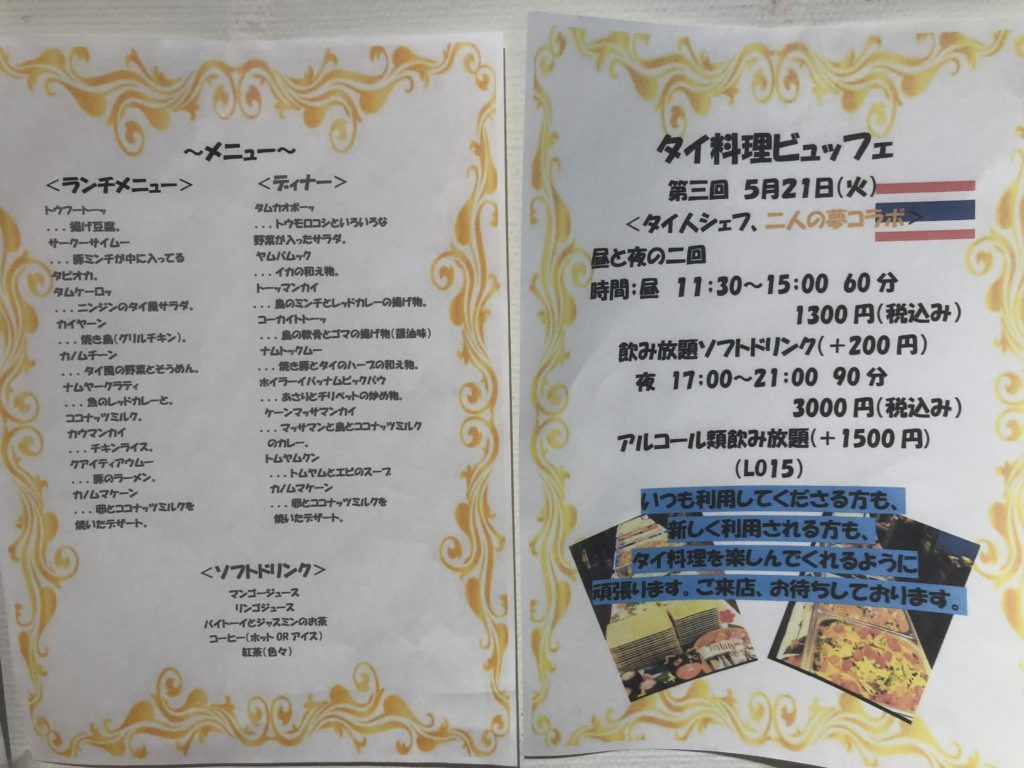 ～メニュー～
＜ランチメニュー＞
トウフートーッ
...揚げ豆腐。
サークーサイムー
...豚ミンチが中に入ってる
タピオカ。
タムケーロッ
...ニンジンのタイ風サラダ。
カイヤーン
...焼き鳥(グリルチキン)。
カノムチーン
...タイ風の野菜とそうめん。
ナムヤークラティ
...魚のレッドカレーと。
ココナッツミルク。
カウマンカイ
...チキンライス。
クアイティアウムー
...豚のラーメン。
カノムマケーン
...卵とココナッツミルクを
焼いたデザート。
＜ディナー＞
タムカオポーッ
...トウモロコシといろいろな
野菜が入ったサラダ。
ヤムパムック
...イカの和え物。
トーッマンカイ
...鳥のミンチとレッドカレーの揚げ物。
コーカイトトーッ
...鳥の軟骨とゴマの揚げ物(醤油味)
ナムトックムー
...焼き豚とタイのハーブの和え物。
ホイラーイパッナムピックパウ
...あさりとチリペットの炒め物。
ケーンマッサマンカイ
...マッサマンと鳥とココナッツミルク
のカレー。
トムヤムクン
...トムヤムとエビのスープ
カノムマケーン
...卵とココナッツミルクを
焼いたデザート。
＜ソフトドリンク＞
マンゴージュース
リンゴジュース
バイトーイとジャスミンのお茶
コーヒー(ホット OR アイス)
紅茶(色々)
タイ料理ビュッフェ
第三回 5月21日(火)
＜タイ人シェフ、二人の夢コラボ＞
昼と夜の二回
時間:昼 11:30～15:00 60分
1300円(税込み)
飲み放題ソフトドリンク(＋200円)
夜 17:00～21:00 90分
3000円(税込み)
アルコール類飲み放題(＋1500円)
(LO15)
いつも利用してくださる方も、
新しく利用される方も、
タイ料理を楽しんでくれるように
頑張ります。ご来店、お待ちしております。